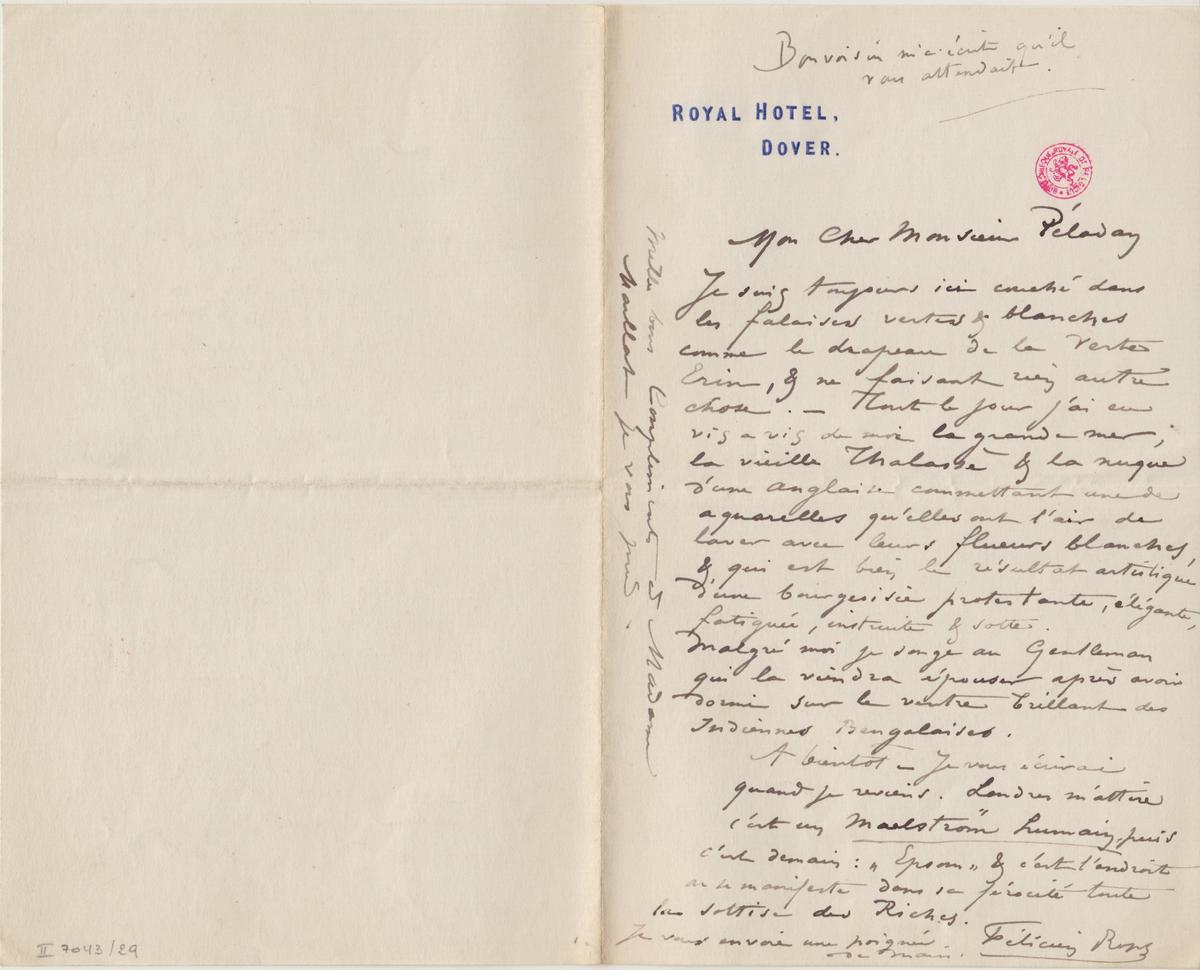 Bonvoisin m'a écrit qu'il
vous attendait.
ROYAL HOTEL,
DOVER.
BIBLIOTHEQUE ROYALE DE BELGIQUE
Mon Cher Monsieur Péladan
Je suis toujours ici couché dans
les falaises vertes & blanches
comme le drapeau de la Verte
Erin, & ne faisant rien autre
chose. — Tout le jour j'ai eu
vis a vis de moi la grande mer,
la vieille Thalassè & la nuque
d'une anglaise commettant une de
aquarelles qu'elles ont l'air de
laver avec leurs flueurs blanches,
& qui est bien le résultat artistique
d'une bourgeoisie protestante, élégante,
fatiguée, instruite & sotte.
Malgré moi je songe au Gentleman
qui la viendra épouser après avoir
dormi sur le ventre brillant des
Indiennes Bengalaises.
A bientôt – Je vous écrirai
quand je reviens. Londres m'attire
c'est un Maelström humain, puis
c'est demain : „ Epsom „ & c'est l'endroit
où se manifeste dans sa férocité toute
la sottise des Riches.
Je vous envoie une poignée
de main. Félicien Rops
Mille bons Compliments à Madame
Maillat je vous prie.
II 7043/29